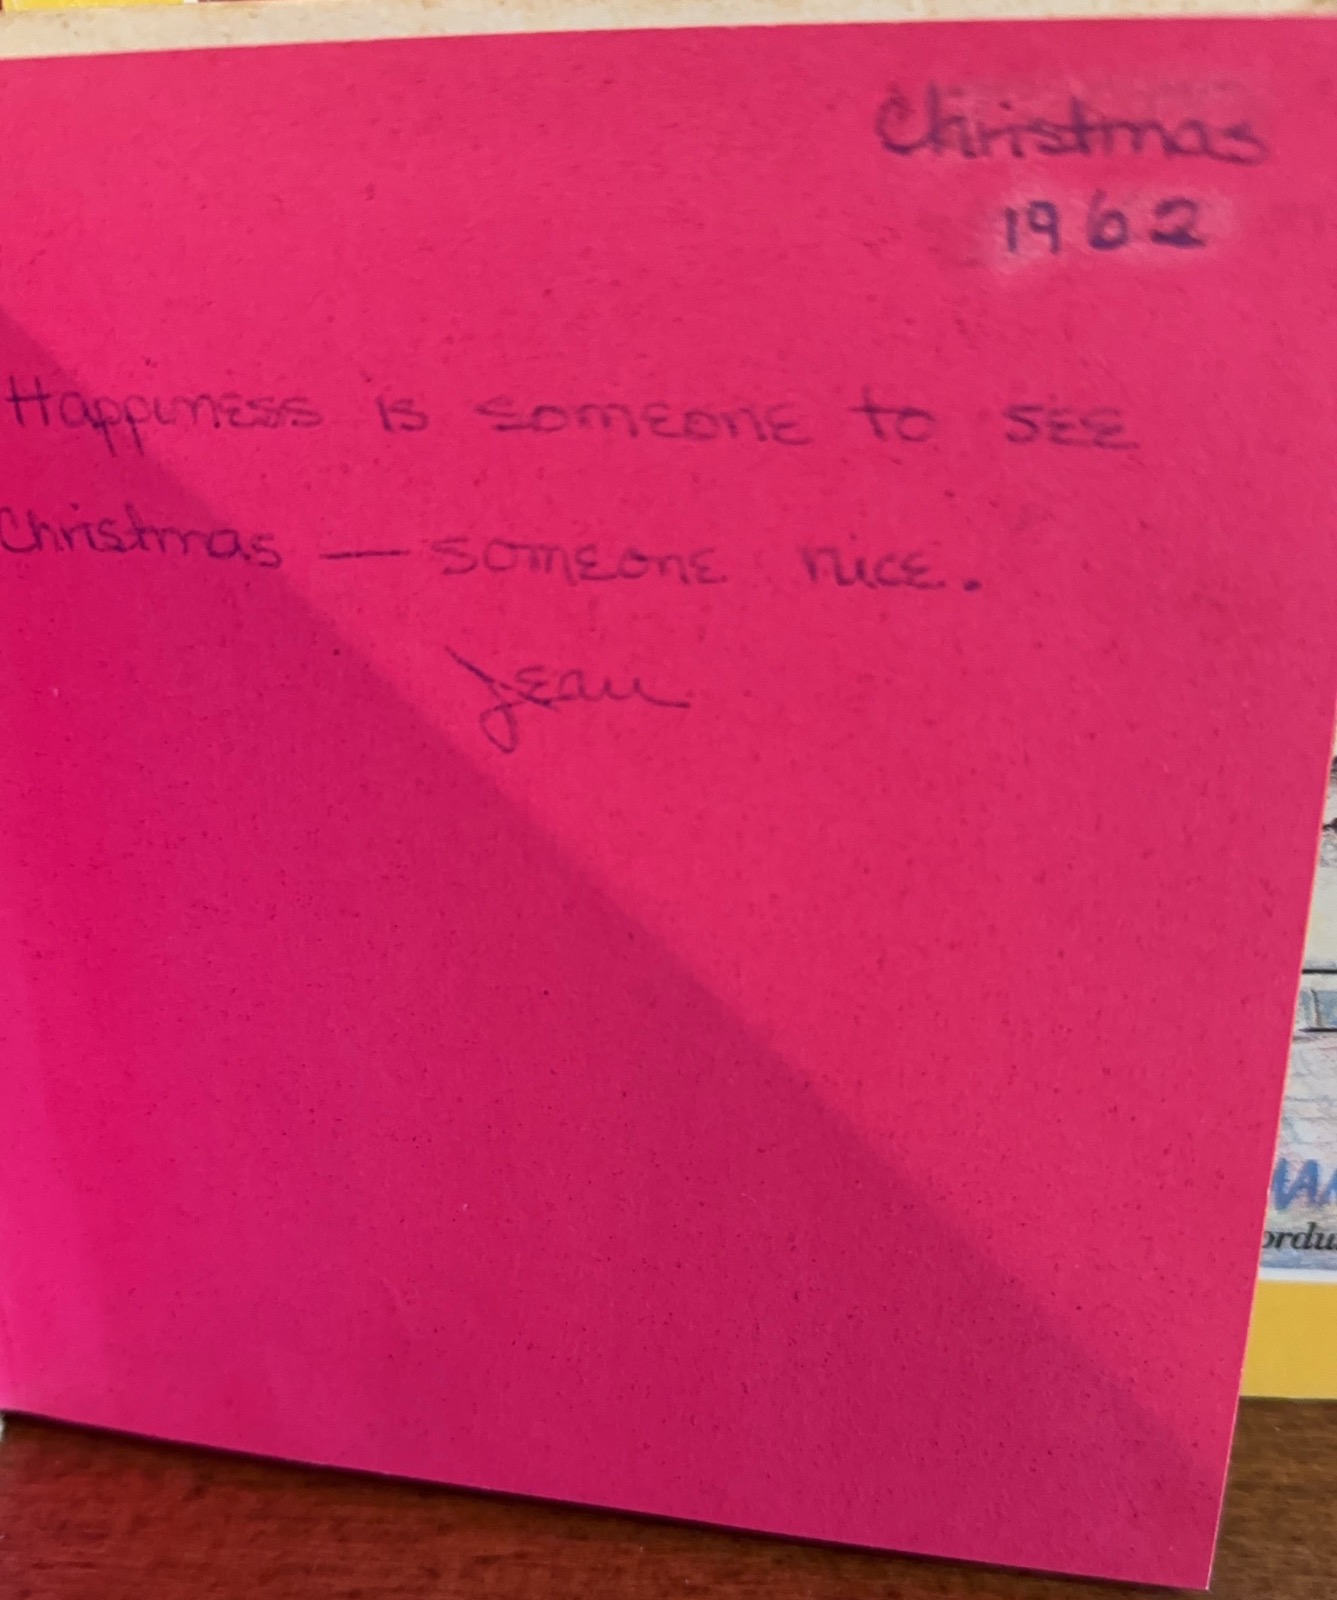 Christmas
1962
Happiness is someone to see
Christmas — someone nice.
Jean